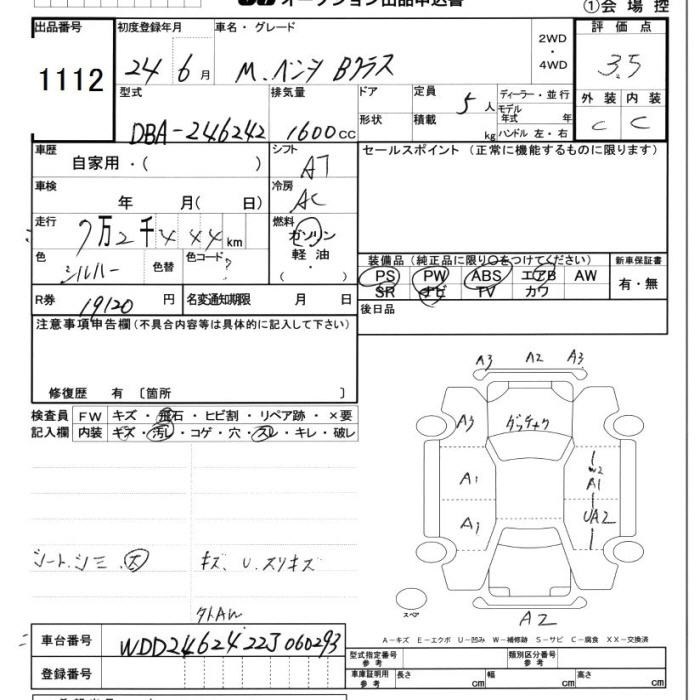 オークション出品申込書
①会場控
出品番号
1112
初度登録年月
24 6月
車名・グレード
M.ベンツ Bクラス
2WD・4WD
評価点
3.5
外装 内装
C C
型式
DBA-246242
排気量
1600cc
ドア
形状
定員
5人
積載
kg
ディーラー・並行
モデル年式 年
ハンドル 左・右
車歴
自家用・( )
シフト
AT
セールスポイント（正常に機能するものに限ります）
車検
年 月( 日)
冷房
AC
走行
7万2千444km
燃料
ガソリン
軽油
・( )
色
シルバー
色替
色コード
?
装備品（純正品に限り○をつけてください）
PS PW ABS エアB AW
SR ナビ TV カワ
新車保証書
有・無
R券
19120円
名変通知期限 月 日
後日品
注意事項申告欄（不具合内容等は具体的に記入して下さい）
修復歴 有〔箇所 〕
検査員記入欄
FW キズ・飛石・ヒビ割・リペア跡・×要
内装 キズ・汚レ・コゲ・穴・スレ・キレ・破レ
シート.シミ.大
キズ、U.スリキズ
A3 A2 A3
A3
A1
W2
A1
A1
UA2
スペア
A2
A－キズ E－エクボ U－凹み W－補修跡 S－サビ C－腐食 XX－交換済
車台番号
WDD2462422J060293
登録番号
型式指定番号 参考
類別区分番号 参考
車庫証明用 参考
長さ cm
幅 cm
高さ cm